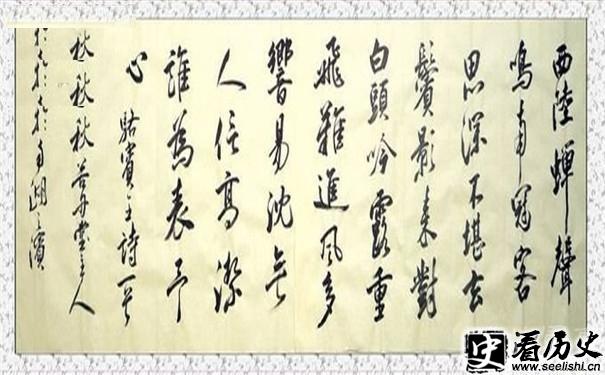 西陸蟬聲
鳴南冠客
思深不堪玄
鬢影来對
白頭吟露重
飛難進風多
響易沈無
人信高潔
誰為表予
心 駱賓王詩一首
堂主人
南湖之濱
史 看历史
www.seelishi.cn